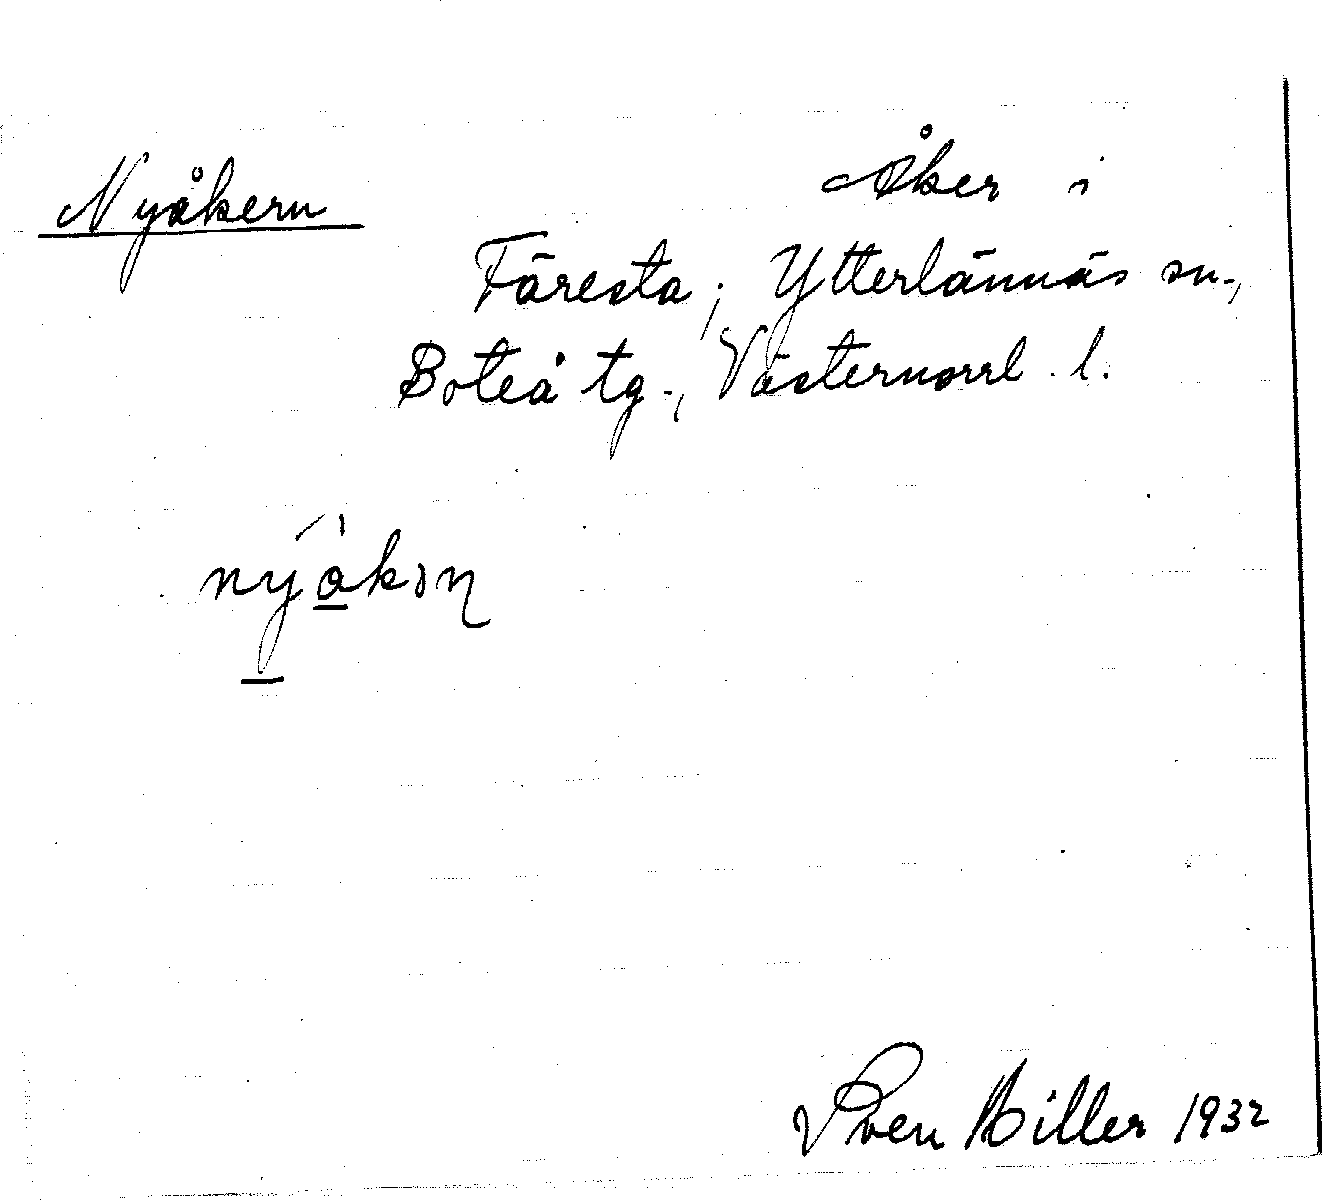 Nyåkern
Åker i
Färesta, Ytterlännäs sn.,
Boteå tg., Västernorrl. l.
nẏ́åkɔn
Sven Hiller 1932